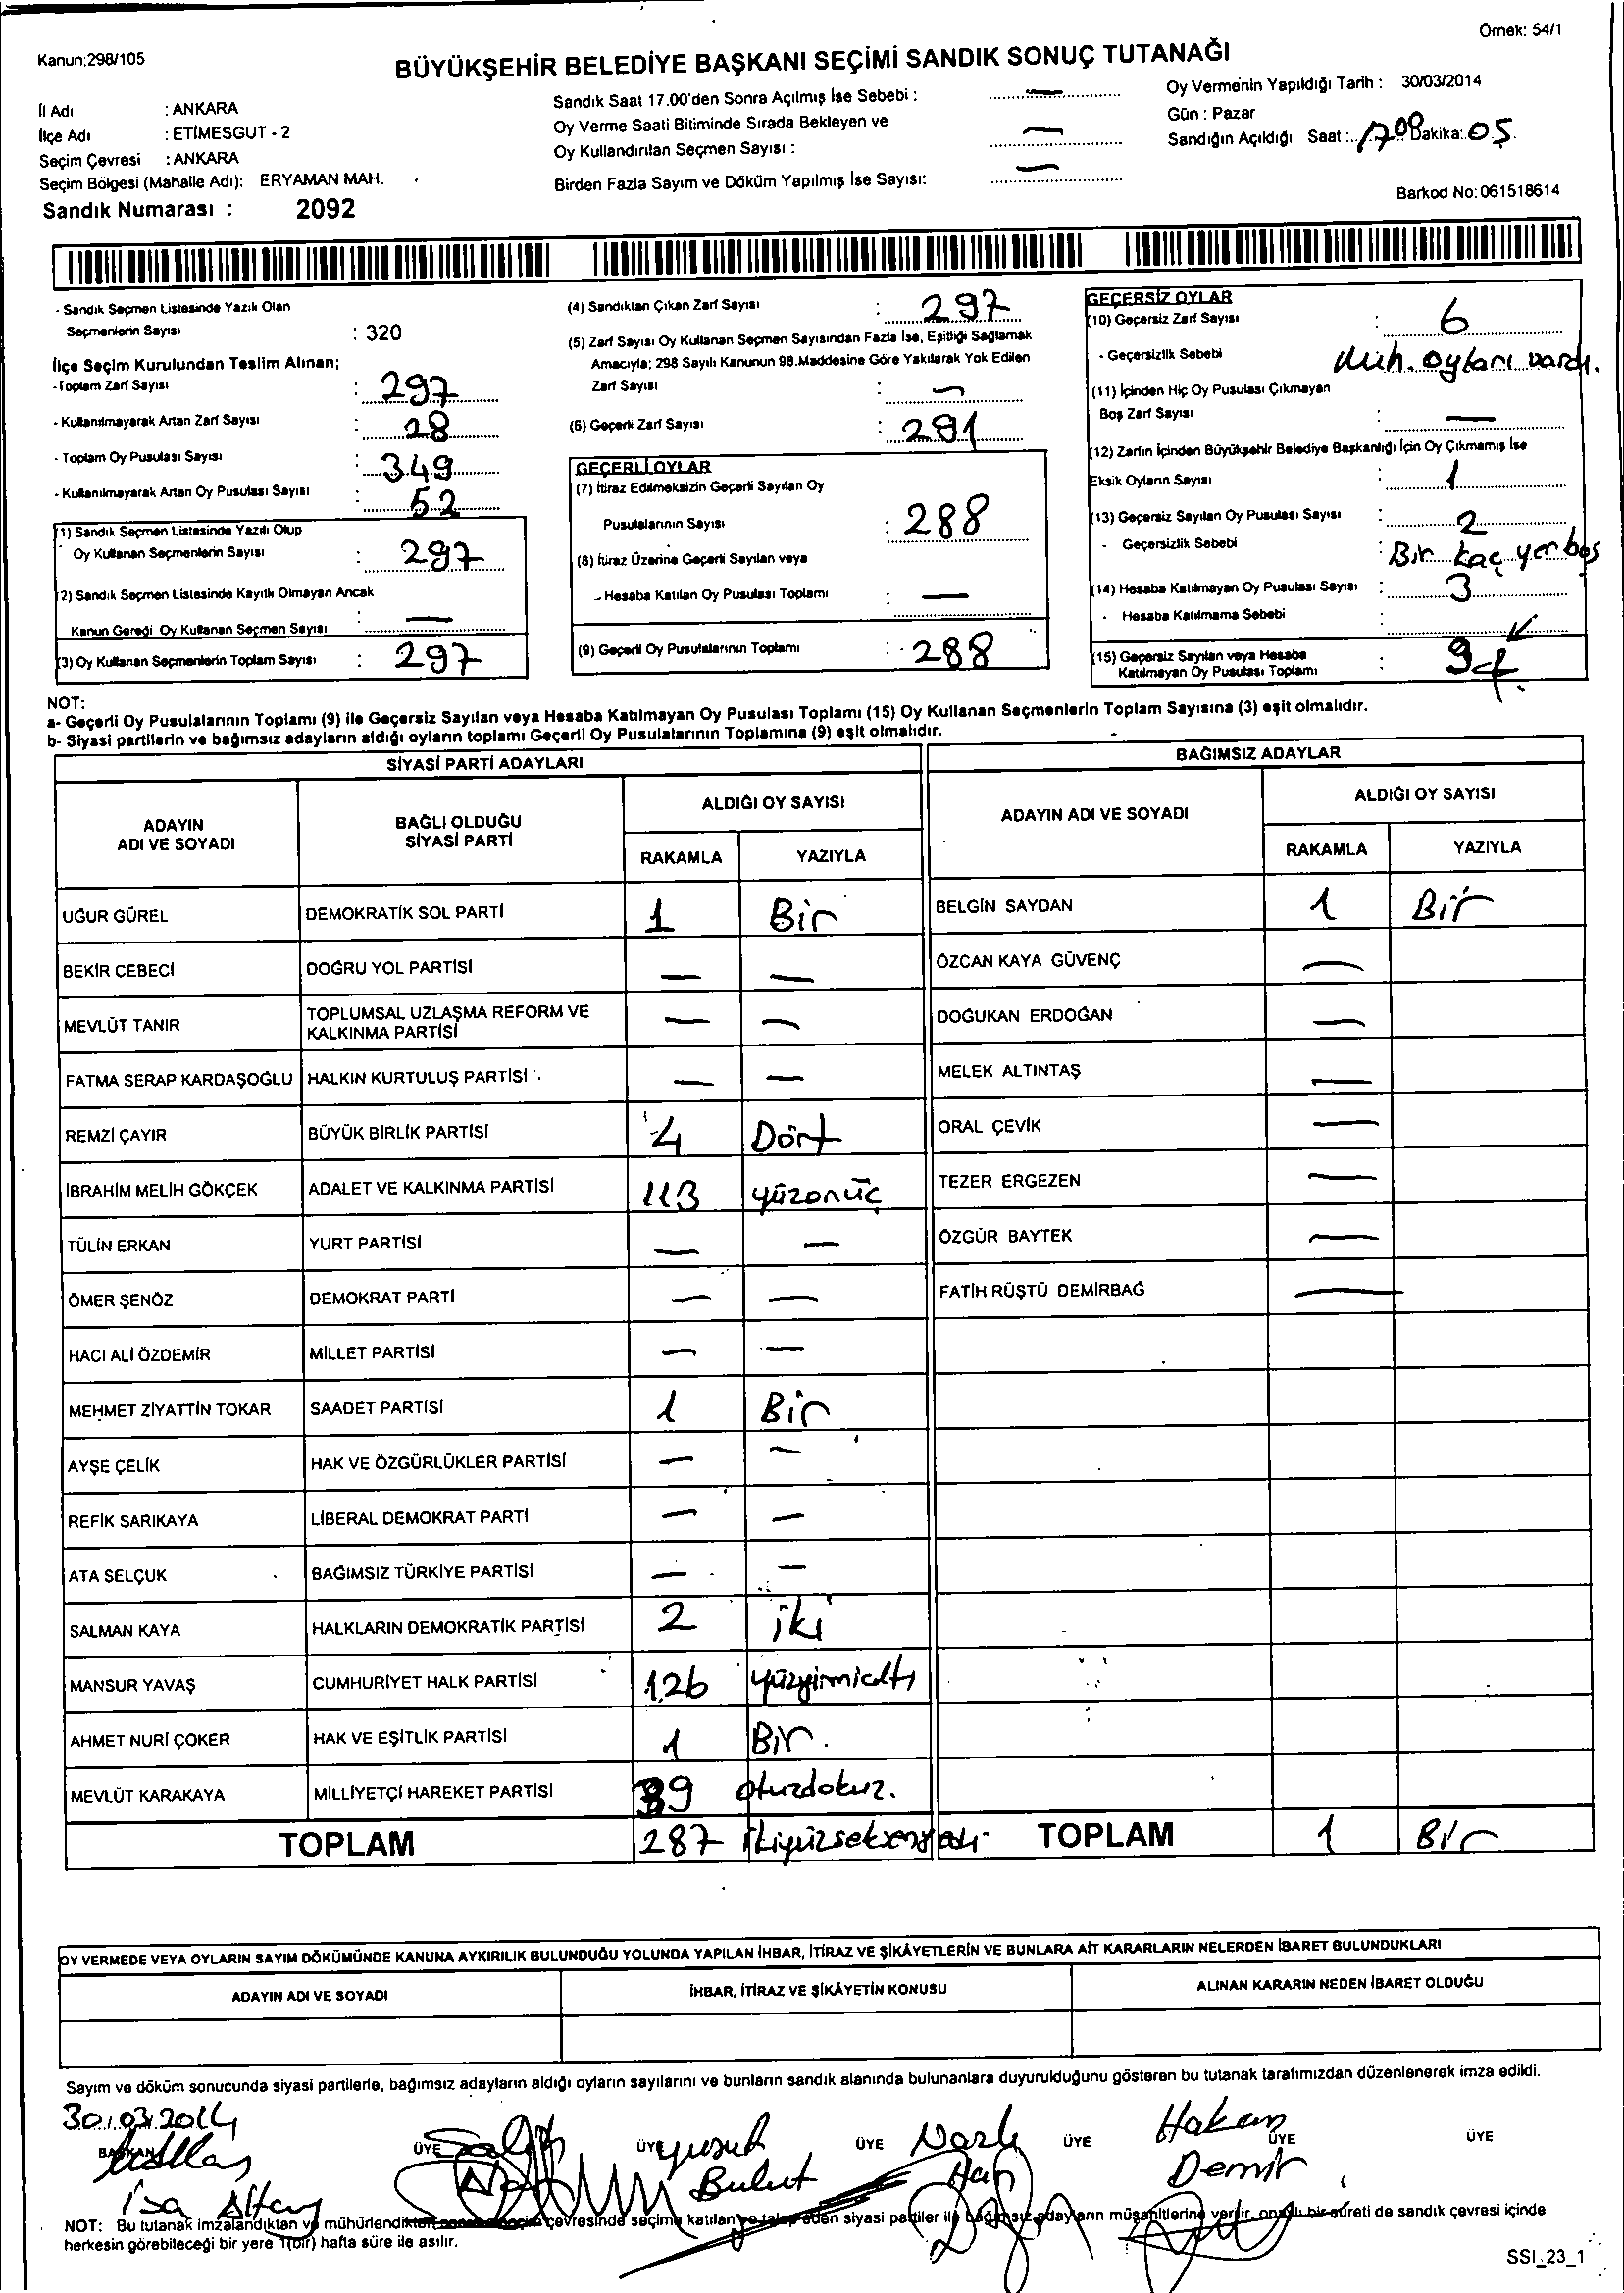 Örnek: 54/1
Kanun:298/105
BÜYÜKŞEHİR BELEDİYE BAŞKANI SEÇİMİ SANDIK SONUÇ TUTANAĞI
İl Adı : ANKARA
İlçe Adı : ETİMESGUT - 2
Seçim Çevresi : ANKARA
Seçim Bölgesi (Mahalle Adı): ERYAMAN MAH.
Sandık Numarası : 2092
Sandık Saat 17.00'den Sonra Açılmış İse Sebebi : —
Oy Verme Saati Bitiminde Sırada Bekleyen ve
Oy Kullandırılan Seçmen Sayısı : —
Birden Fazla Sayım ve Döküm Yapılmış İse Sayısı: —
Oy Vermenin Yapıldığı Tarih : 30/03/2014
Gün : Pazar
Sandığın Açıldığı Saat : 1700 Dakika: 05
Barkod No: 061518614
- Sandık Seçmen Listesinde Yazılı Olan
Seçmenlerin Sayısı : 320
İlçe Seçim Kurulundan Teslim Alınan;
-Toplam Zarf Sayısı : 297
- Kullanılmayarak Artan Zarf Sayısı : 28
- Toplam Oy Pusulası Sayısı : 349
- Kullanılmayarak Artan Oy Pusulası Sayısı : 52
(1) Sandık Seçmen Listesinde Yazılı Olup
Oy Kullanan Seçmenlerin Sayısı : 297
(2) Sandık Seçmen Listesinde Kayıtlı Olmayan Ancak
Kanun Gereği Oy Kullanan Seçmen Sayısı : —
(3) Oy Kullanan Seçmenlerin Toplam Sayısı : 297
(4) Sandıktan Çıkan Zarf Sayısı : 297
(5) Zarf Sayısı Oy Kullanan Seçmen Sayısından Fazla İse, Eşitliği Sağlamak
Amacıyla; 298 Sayılı Kanunun 98.Maddesine Göre Yakılarak Yok Edilen
Zarf Sayısı : —
(6) Geçerli Zarf Sayısı : 291
GEÇERLİ OYLAR
(7) İtiraz Edilmeksizin Geçerli Sayılan Oy
Pusulalarının Sayısı : 288
(8) İtiraz Üzerine Geçerli Sayılan veya
- Hesaba Katılan Oy Pusulası Toplamı : —
(9) Geçerli Oy Pusulalarının Toplamı : 288
GEÇERSİZ OYLAR
(10) Geçersiz Zarf Sayısı : 6
- Geçersizlik Sebebi Müh. oyları vardı.
(11) İçinden Hiç Oy Pusulası Çıkmayan
Boş Zarf Sayısı : —
(12) Zarfın İçinden Büyükşehir Belediye Başkanlığı İçin Oy Çıkmamış İse
Eksik Oyların Sayısı : 1
(13) Geçersiz Sayılan Oy Pusulası Sayısı : 2
- Geçersizlik Sebebi : Bir kaç yer boş
(14) Hesaba Katılmayan Oy Pusulası Sayısı : 3
- Hesaba Katılmama Sebebi
(15) Geçersiz Sayılan veya Hesaba
Katılmayan Oy Pusulası Toplamı : 9
NOT:
a- Geçerli Oy Pusulalarının Toplamı (9) ile Geçersiz Sayılan veya Hesaba Katılmayan Oy Pusulası Toplamı (15) Oy Kullanan Seçmenlerin Toplam Sayısına (3) eşit olmalıdır.
b- Siyasi partilerin ve bağımsız adayların aldığı oyların toplamı Geçerli Oy Pusulalarının Toplamına (9) eşit olmalıdır.
SİYASİ PARTİ ADAYLARI
ADAYIN ADI VE SOYADI BAĞLI OLDUĞU SİYASİ PARTİ ALDIĞI OY SAYISI
RAKAMLA YAZIYLA
UĞUR GÜREL DEMOKRATİK SOL PARTİ 1 Bir
BEKİR CEBECİ DOĞRU YOL PARTİSİ — —
MEVLÜT TANIR TOPLUMSAL UZLAŞMA REFORM VE KALKINMA PARTİSİ — —
FATMA SERAP KARDAŞOĞLU HALKIN KURTULUŞ PARTİSİ — —
REMZİ ÇAYIR BÜYÜK BİRLİK PARTİSİ 4 Dört
İBRAHİM MELİH GÖKÇEK ADALET VE KALKINMA PARTİSİ 113 yüzonüç
TÜLİN ERKAN YURT PARTİSİ — —
ÖMER ŞENÖZ DEMOKRAT PARTİ — —
HACI ALİ ÖZDEMİR MİLLET PARTİSİ — —
MEHMET ZİYATTİN TOKAR SAADET PARTİSİ 1 Bir
AYŞE ÇELİK HAK VE ÖZGÜRLÜKLER PARTİSİ — —
REFİK SARIKAYA LİBERAL DEMOKRAT PARTİ — —
ATA SELÇUK BAĞIMSIZ TÜRKİYE PARTİSİ — —
SALMAN KAYA HALKLARIN DEMOKRATİK PARTİSİ 2 iki
MANSUR YAVAŞ CUMHURİYET HALK PARTİSİ 126 yüzyirmialtı
AHMET NURİ ÇOKER HAK VE EŞİTLİK PARTİSİ 1 Bir.
MEVLÜT KARAKAYA MİLLİYETÇİ HAREKET PARTİSİ 39 otuzdokuz.
TOPLAM 287 ikiyüzseksenyedi
BAĞIMSIZ ADAYLAR
ADAYIN ADI VE SOYADI ALDIĞI OY SAYISI
RAKAMLA YAZIYLA
BELGİN SAYDAN 1 Bir
ÖZCAN KAYA GÜVENÇ —
DOĞUKAN ERDOĞAN —
MELEK ALTINTAŞ —
ORAL ÇEVİK —
TEZER ERGEZEN —
ÖZGÜR BAYTEK —
FATİH RÜŞTÜ DEMİRBAĞ —
TOPLAM 1 Bir
OY VERMEDE VEYA OYLARIN SAYIM DÖKÜMÜNDE KANUNA AYKIRILIK BULUNDUĞU YOLUNDA YAPILAN İHBAR, İTİRAZ VE ŞİKÂYETLERİN VE BUNLARA AİT KARARLARIN NELERDEN İBARET BULUNDUKLARI
ADAYIN ADI VE SOYADI İHBAR, İTİRAZ VE ŞİKÂYETİN KONUSU ALINAN KARARIN NEDEN İBARET OLDUĞU
Sayım ve döküm sonucunda siyasi partilerle, bağımsız adayların aldığı oyların sayılarını ve bunların sandık alanında bulunanlara duyurulduğunu gösteren bu tutanak tarafımızdan düzenlenerek imza edildi.
30.03.2014
BAŞKAN ÜYE ÜYE ÜYE ÜYE ÜYE ÜYE
İsa Altay
Yusuf Bulut
Hakan Demir
NOT: Bu tutanak imzalandıktan ve mühürlendikten sonra seçim çevresinde seçime katılan ve talep eden siyasi partiler ile bağımsız adayların müşahitlerine verilir, onaylı bir sureti de sandık çevresi içinde
herkesin görebileceği bir yere 1(bir) hafta süre ile asılır.
SSI_23_1